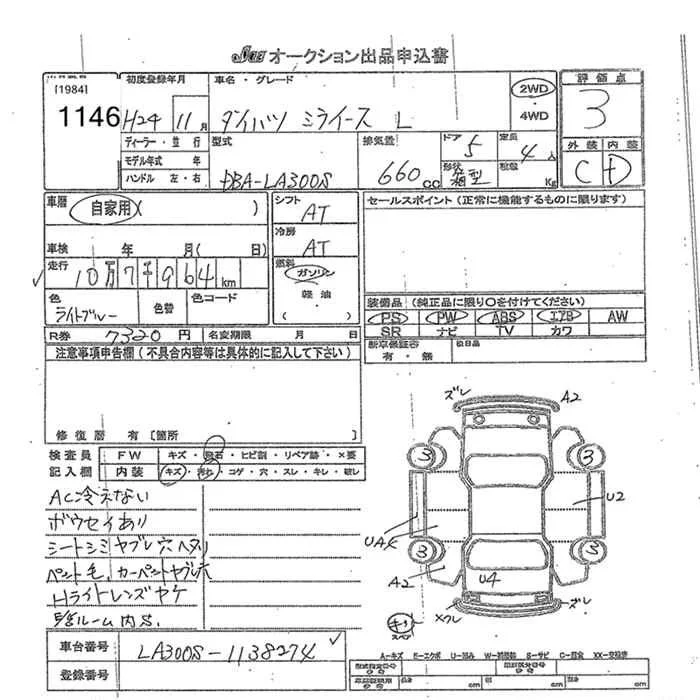 オークション出品申込書
[1984]
1146
初度登録年月
H24 11月
ディーラー・並行
モデル年式 年
ハンドル 左・右
車名・グレード
ダイハツ ミライース L
2WD
・
4WD
評価点
3
型式
DBA-LA300S
排気量
660 cc
ドア
5
形状
箱型
定員
4人
Kg
外装 内装
C D
車歴
自家用( )
車検 年 月( 日)
走行 10万7千964km
色
ライトブルー
色替
色コード
シフト
AT
冷房
AT
燃料
ガソリン
軽油
( )
セールスポイント(正常に機能するものに限ります)
装備品(純正品に限り○を付けてください)
PS PW ABS エアB AW
SR ナビ TV カワ
R券 7320円 名変期限 月 日
新車保証書
有・無
注意事項申告欄(不具合内容等は具体的に記入して下さい)
修復歴 有 [箇所 ]
検査員
記入欄
FW キズ・飛石・ヒビ割・リペア跡・×要
内装 キズ・汚れ・コゲ・穴・スレ・キレ・破レ
AC冷えない
ボウセイあり
シートシミ ヤブレ 穴 ヘタリ
ペット毛、カーペットヤブレ穴
Hライトレンズヤケ
車台番号 LA300S-1138274
登録番号
ズレ
A2
3
3
U2
3
3
A2
U4
ズレ
A-キズ E-エクボ U-凹み W-補修跡 S-サビ C-腐食 XX-交換済
cm cm cm